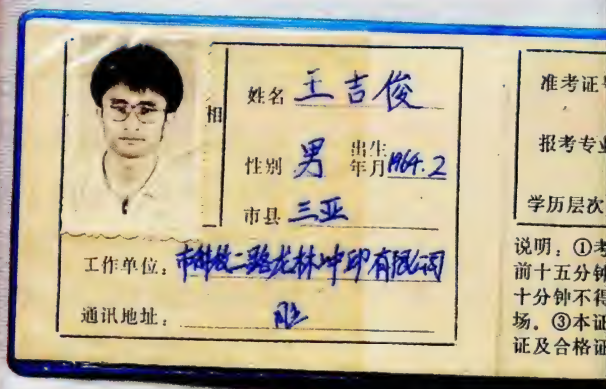 相
姓名 王吉俊
性别 男 出生年月 1964.2
市县 三亚
工作单位： 市 二路龙林冲印有限公司
通讯地址：
准考证号
报考专业
学历层次
说明：①考
前十五分钟
十分钟不得
场。③本证
证及合格证